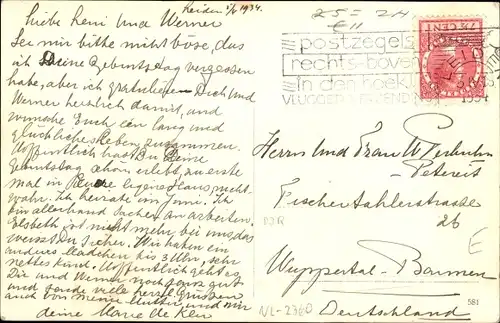 Leiden 5/6 1934.
Liebe Leni und Werner
Sei mir bitte nicht böse, das
ich Deine Geburtstag vergessen
habe, aber ich gratuliere Dich und
Werner herzlich damit, und
wünsche Euch ein lang und
glückliches Leben zusammen.
Hoffentlich hast Du Deine
Geburtstag schön erlebt, zu erste
mal in eigene Haus, nicht
wahr. Ich heirate im Juni. Ich
bin allerhand Sachen an arbeiten.
Elsbeth ist nicht mehr bei uns, das
weisst Du sicher. Wir haben ein
anderes Mädchen bis 3 Uhr, sehr
nettes kind. Hoffentlich geht es
Dir und Werner noch ganz gut
und sende viele herzl. Grüssen
auch von meine Mutter und mir
deine Marie de
25 = 2H
E11
postzegels
rechts-boven
in den hoek
VLUGGER
LEIDEN
1934
Herrn und Frau W.
Petereit
Fischertahlerstrasse
26
Wuppertal-Barmen
Deutschland
NL-2360
E
581